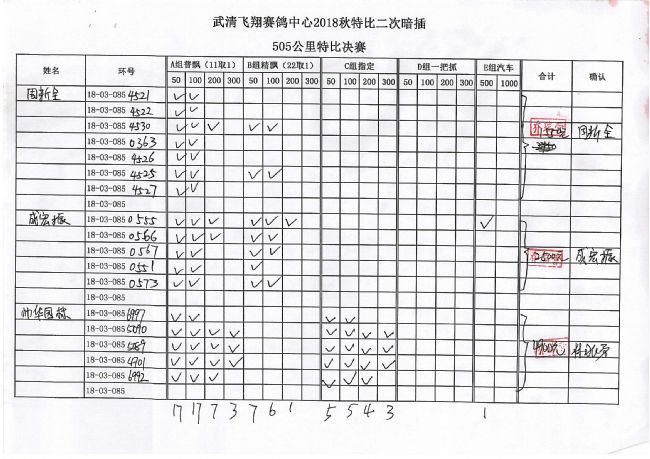 武清飞翔赛鸽中心2018秋特比二次暗插
505公里特比决赛
姓名 环号 A组普飘（11取1） B组精飘（22取1） C组指定 D组一把抓 E组汽车 合计 确认
50 100 200 300 50 100 200 300 50 100 200 300 50 100 200 300 500 1000
周新全 18-03-085 4521 ✓ ✓
18-03-085 4522 ✓ ✓
18-03-085 4530 ✓ ✓ ✓ ✓ ✓ 周新全
18-03-085 0363 ✓ ✓
18-03-085 4526 ✓ ✓
18-03-085 4525 ✓ ✓ ✓ ✓
18-03-085 4527 ✓ ✓
18-03-085
成宏振 18-03-085 0555 ✓ ✓ ✓ ✓ ✓ ✓ ✓
18-03-085 0566 ✓ ✓ ✓ ✓ ✓
18-03-085 0567 ✓ ✓ ✓ ✓
18-03-085 0551 ✓ ✓ ✓
18-03-085 0573 ✓ ✓ ✓ ✓
18-03-085
18-03-085 6997 ✓ ✓ ✓ ✓
18-03-085 5090 ✓ ✓ ✓ ✓ ✓ ✓ ✓ ✓
18-03-085 ✓ ✓ ✓ ✓ ✓ ✓ ✓ ✓
18-03-085 4901 ✓ ✓ ✓ ✓ ✓ ✓ ✓ ✓
18-03-085 6992 ✓ ✓ ✓ ✓ ✓ ✓
18-03-085
17 17 7 3 7 6 1 5 5 4 3 1